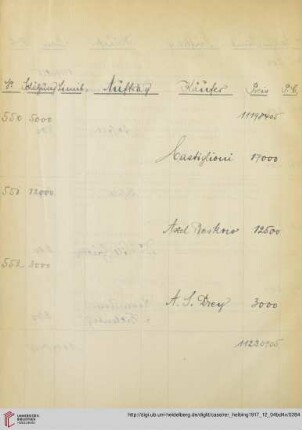 Nr. Schätzung Limit. Auftrag Käufer Preis
11198405
550 5000
Castiglioni 17000
551 12000
Axel Beskow 12500
552 3000
A. S. Drey 3000
11230905
http://digi.ub.uni-heidelberg.de/diglit/cassirer_helbing1917_12_04bd4x/0284
UNIVERSITÄTS-
BIBLIOTHEK
HEIDELBERG